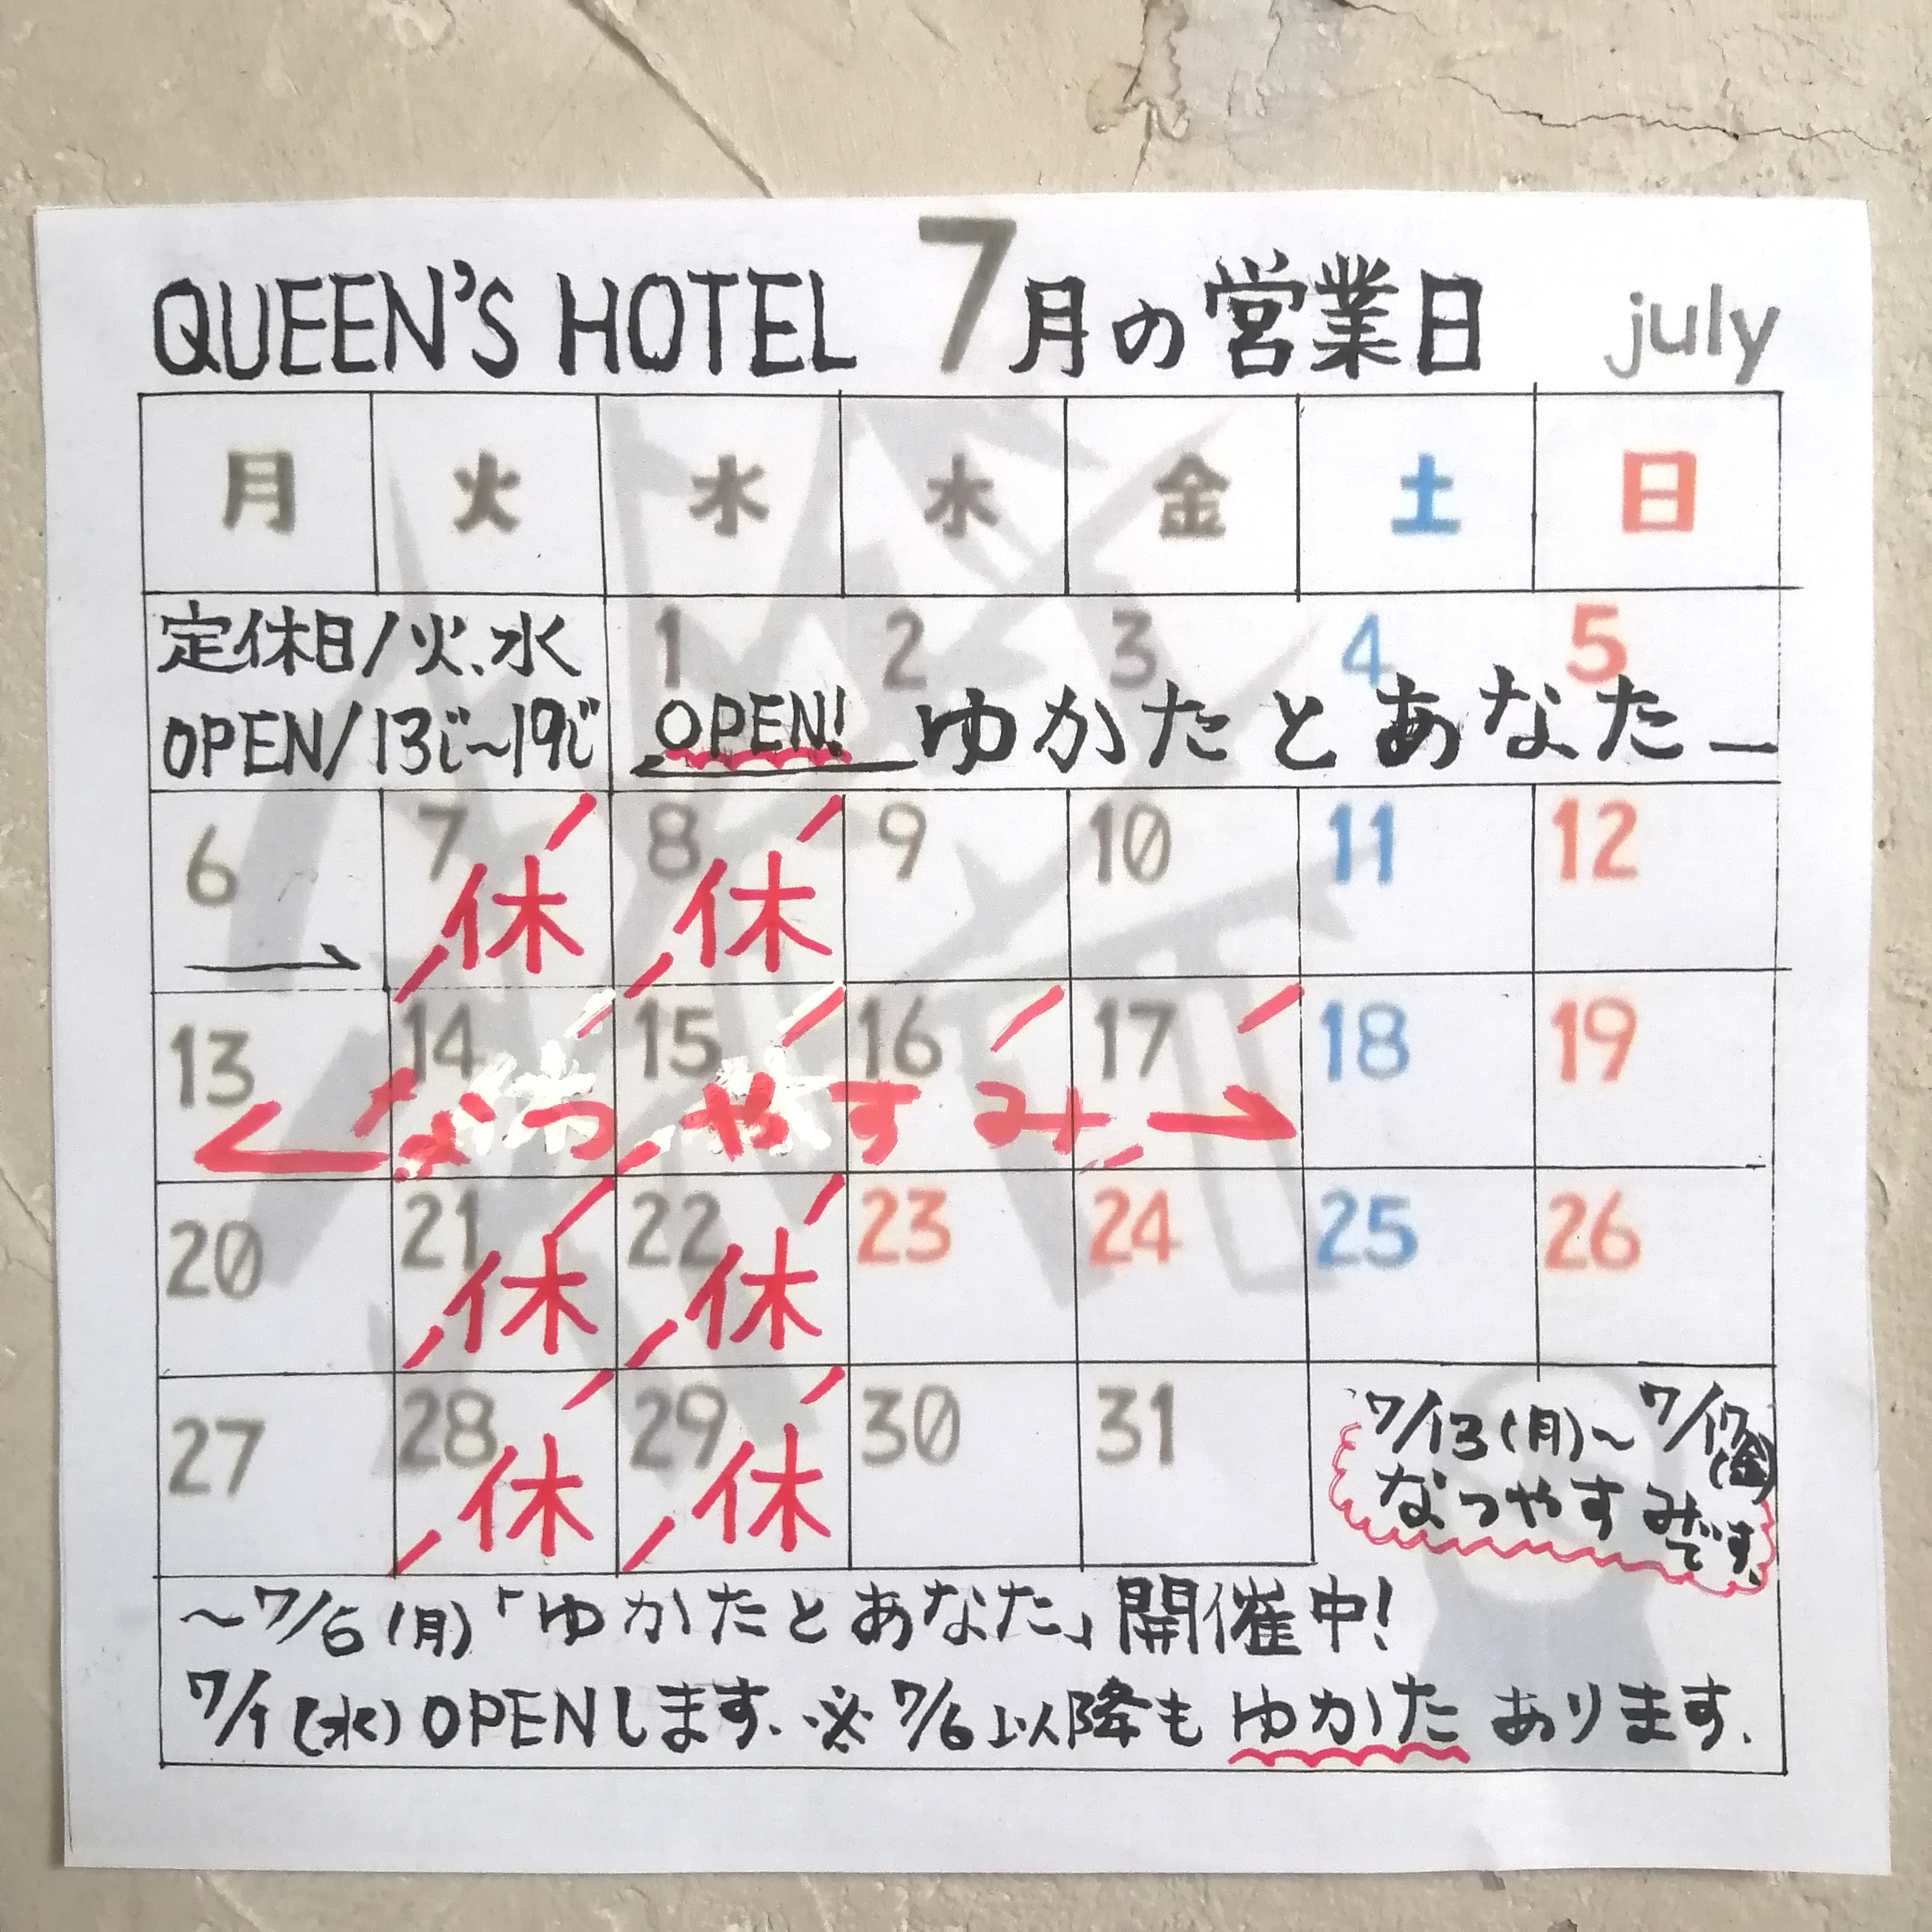 QUEEN'S HOTEL 7月の営業日 july
月 火 水 木 金 土 日
定休日/火、水
OPEN/13じ~19じ
1 2 3 4 5
OPEN! ゆかたとあなた
6 7 8 9 10 11 12
休 休
13 14 15 16 17 18 19
なつやすみ
20 21 22 23 24 25 26
休 休
27 28 29 30 31
休 休
7/13(月)~7/17(金)
なつやすみです.
~7/6(月)「ゆかたとあなた」開催中!
7/1(水)OPENします.※7/6以降もゆかたあります.